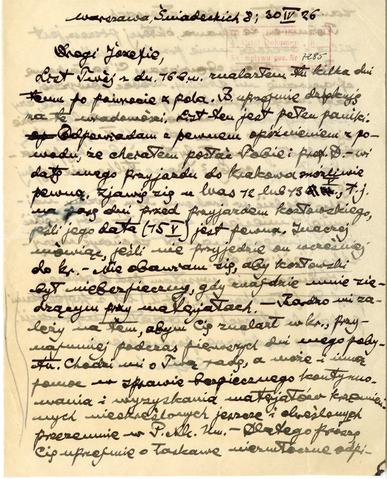 Warszawa, Śniadeckich 8; 30 IV 26
Drogi Józefie,
List Twój z dn. 16 b.m. znalazłem tu kilka dni
temu po powrocie z pola. B. uprzejmie dziękuję
za te wiadomości, List ten jest pełen paniki.
Odpowiadam z pewnem opóźnieniem z po-
wodu, że chciałem posłać Tobie i prof. D. – wi
datę mego przyjazdu do Krakowa możliwie
pewną. Zjawię się u Was 12 lub 13 t.j.
na parę dni przed przyjazdem Kozłowskiego,
jeśli jego data (15 V) jest pewna. Inaczej
mówiąc, jeśli nie przyjedzie on wcześniej
do Kr. – Nie obawiam się, aby Kozłowski
był niebezpieczny, gdy znajdzie mnie sie-
dzącym przy materjałach. – Bardzo mi za-
leży na tem, abym Cię znalazł w Kr., przy-
najmniej podczas pierwszych dni mego poby-
tu. Chodzi mi o Twą radę, a może i inną
pomoc w sprawie bezpiecznego kontynuo-
wania i wyzyskania materjałów krzemien-
nych nieokreślonych jeszcze i określonych
przezemnie w P. – Dlatego proszę
Cię uprzejmie o łaskawe niezwłoczne odpi-